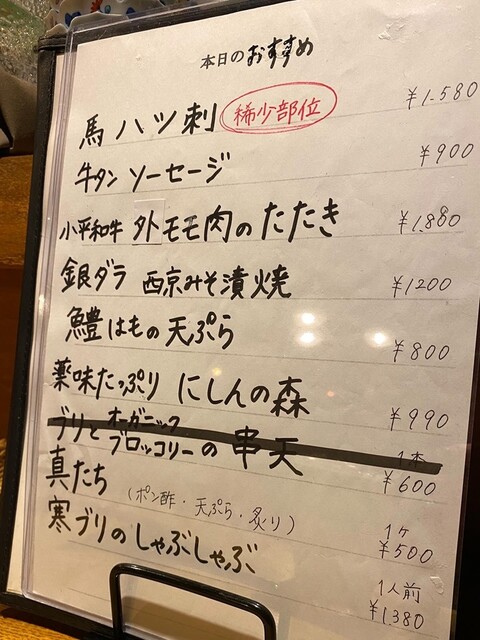 本日のおすすめ
馬 ハツ刺 稀少部位 ¥1.580
牛タン ソーセージ ¥900
小平和牛 外モモ肉のたたき ¥1.880
銀ダラ 西京みそ漬焼 ¥1200
鱧はもの天ぷら ¥800
薬味たっぷり にしんの森 ¥990
ブリとオーガニックブロッコリーの串天 1本 ¥600
真たち (ポン酢・天ぷら・炙り) 1ケ ¥500
寒ブリのしゃぶしゃぶ 1人前 ¥1380